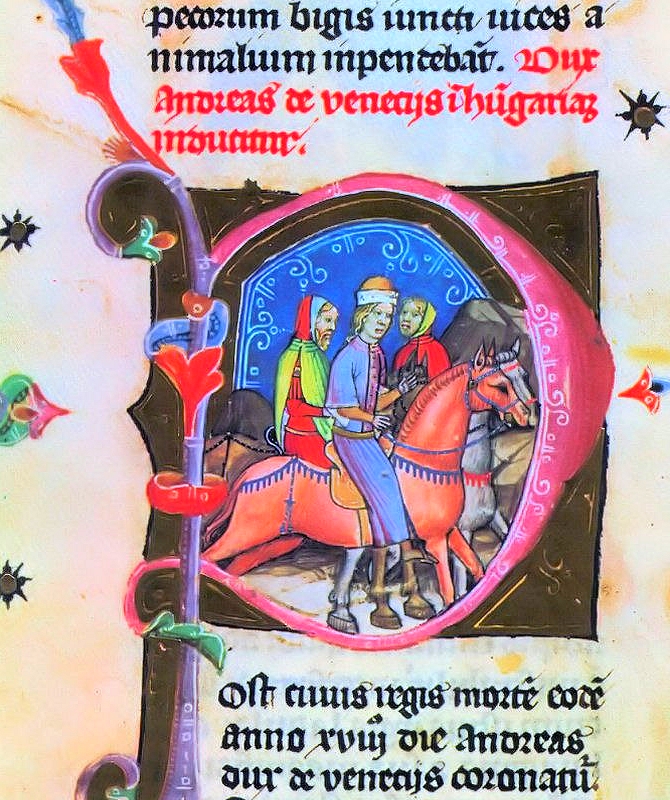 pecorum bigis iuncti uices a
nimalium inpendebāt. Dux
Andreas de venecijs ī hūgariaꝫ
inducitur.
P
Ost cuius regis mortē eodē
anno xviij die Andreas
dux de venecijs coronatū.